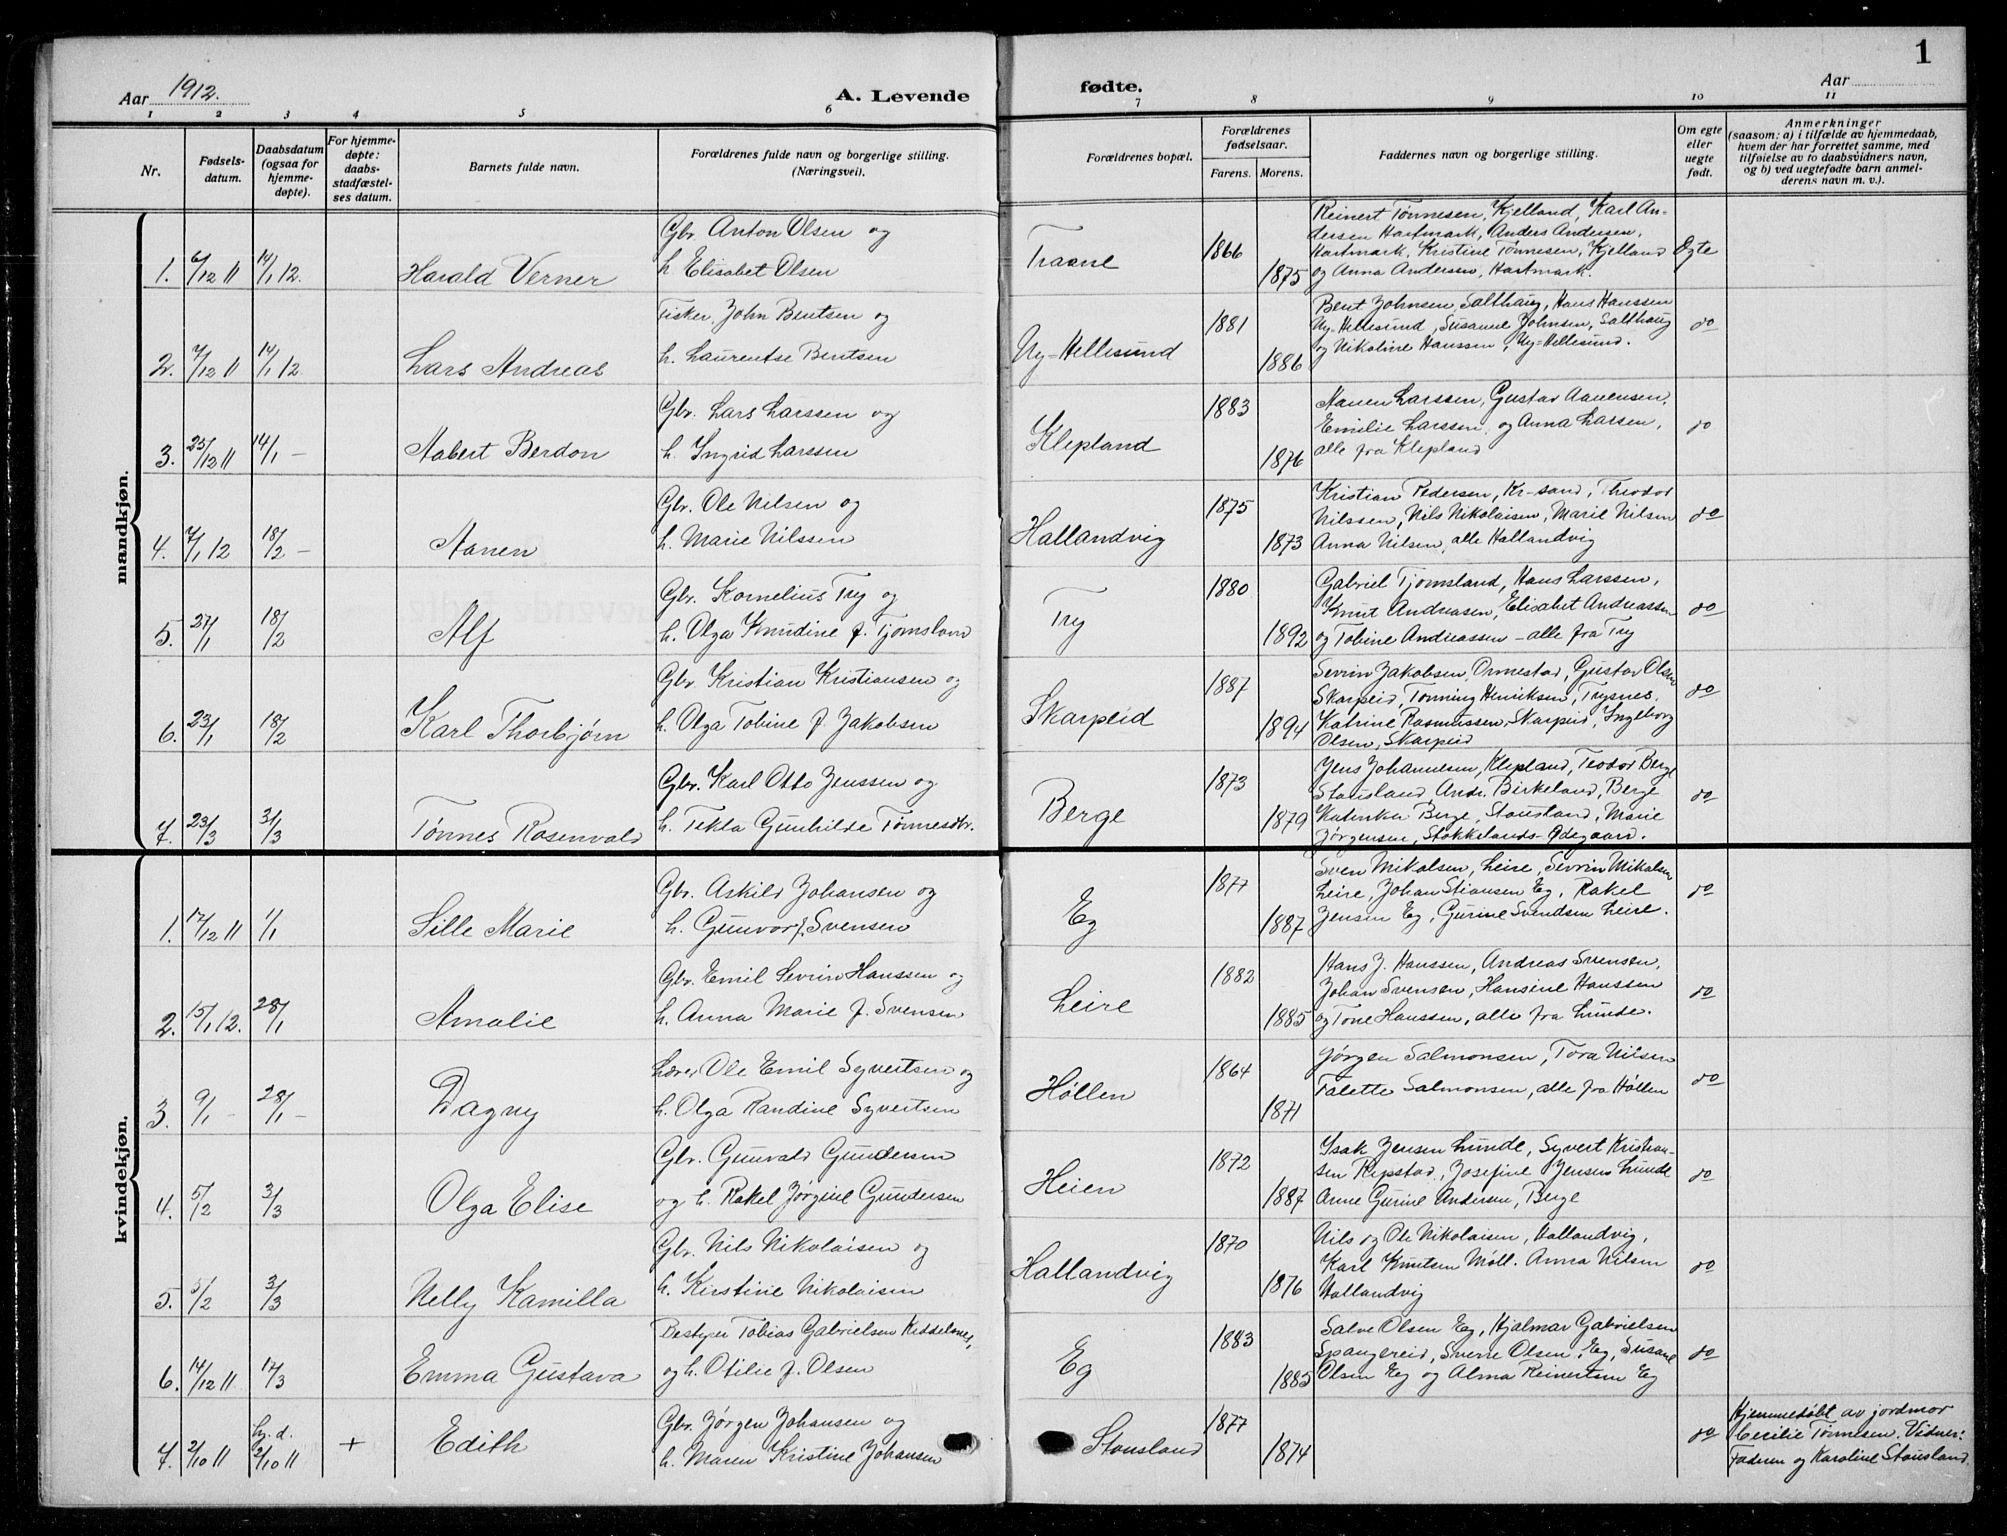 1
Aar 1912.
A. Levende fødte.
Aar
1 2 3 4 5 6 7 8 9 10 11
Nr.
Fødsels-
datum.
Daabsdatum
(ogsaa for
hjemme-
døpte).
For hjemme-
døpte:
daabs-
stadfæstel-
ses datum.
Barnets fulde navn.
Forældrenes fulde navn og borgerlige stilling.
(Næringsvei).
Forældrenes bopæl.
Forældrenes
fødselsaar.
Farens. Morens.
Faddernes navn og borgerlige stilling.
Om egte
eller
uegte
født.
Anmerkninger
(saasom: a) i tilfælde av hjemmedaab,
hvem der har forrettet samme, med
tilføielse av to daabsvidners navn,
og b) ved uegtefødte barn anmel-
derens navn m. v.).
mandkjøn.
1. 6/12 11 14/1 12. Harald Verner
Gbr. Anton Olsen og
h. Elisabet Olsen
Traane 1866 1875
Reinert Tønnesen, Kjelland, Karl An-
dersen Hartmark, Anders Andersen,
Hartmark, Kristine Tønnesen, Kjelland
og Anna Andersen, Hartmark.
Egte
2. 7/12 11 14/1 12 Lars Andreas
Fisker John Bentsen og
h. Laurentse Bentsen
Ny-Hellesund 1881 1886
Bent Johnsen, Salthaug, Hans Hanssen
Ny-Hellesund, Susanne Johnsen, Salthaug
og Nikoline Hanssen, Ny-Hellesund.
do
3. 25/12 11 14/1 – Aabert Berdon
Gbr. Lars Larssen og
h. Ingrid Larssen
Klepland 1883 1876
Aanen Larssen, Gustav Aanensen,
Emilie Larssen, og Anna Larsen,
alle fra Klepland
do
4. 7/1 12 18/2 – Aanen
Gbr. Ole Nilsen og
h. Marie Nilssen
Hallandvig 1875 1873
Kristian Pedersen, Kr-sand, Theodor
Nilssen, Nils Nikolaisen, Marie Nilsen
Anna Nilsen, alle Hallandvig
do
5. 27/1 18/2 Alf
Gbr. Kornelius Try og
h. Olga Knudine f. Tjomsland
Try 1880 1892
Gabriel Tjomsland, Hans Larssen,
Knut Andreasen, Elisabet Andreassen
og Tobine Andreassen – alle fra Try
do
6. 23/1 18/2 Karl Thorbjørn
Gbr. Kristian Kristiansen og
h. Olga Tobine f. Jakobsen
Skarpeid 1887 1894
Sevrin Jakobsen, Ormestad, Gustav Olsen
Skarpeid, Tønning Henriksen, Trysnes,
Katrine Rasmussen, Skarpeid, Ingeborg
Olsen, Skarpeid
do
7. 23/3 31/3 Tønnes Rosenvald
Gbr. Karl Otto Jenssen og
h. Tekla Gunhilde Tønnesdtr.
Berge 1873 1879
Jens Johannesen, Klepland, Teodor Berge
Stausland, Andr. Birkeland, Berge
Katinka Berge, Stausland, Marie
Jørgensen, Stokkelands-Ødegaard.
do
kvindekjøn.
1. 17/12 11 1/1 Sille Marie
Gbr. Askild Johansen og
h. Gunvor f. Svensen
Eg 1877 1887
Sven Mikalsen, Leire, Sevrin Mikalsen
Leire, Johan Stiansen Eg, Rakel
Jensen Eg, Gurine Svendsen Leire.
do
2. 15/1 12. 28/1 Amalie
Gbr. Emil Sevrin Hanssen og
h. Anna Marie f. Svensen
Leire 1882 1885
Hans J. Hanssen, Andreas Svensen,
Johan Svensen, Hansine Hanssen
og Tone Hanssen, alle fra Lunde.
do
3. 9/1 – 28/1 – Dagny
Lærer Ole Emil Syvertsen og
h. Olga Randine Syvertsen
Høllen 1864 1871
Jørgen Salmonsen, Tora Nilsen
Talette Salmonsen, alle fra Høllen
do
4. 5/2 3/3 Olga Elise
Gbr. Gunvald Gundersen
og h. Rakel Jørgine Gundersen
Heien 1872 1887
Isak Jensen Lunde, Syvert Kristian-
sen Repstad, Josefine Jensen Lunde
Anne Gurine Andersen, Berge
do
5. 5/2 3/3 Nelly Kamilla
Gbr. Nils Nikolaisen og
h. Kirstine Nikolaisen
Hallandvig 1870 1876
Nils og Ole Nikolaisen, Hallandvig,
Karl Knutsen Møll. Anna Nilsen
Hallandvig
do
6. 14/12 11 17/3 Emma Gustava
Bestyrer Tobias Gabrielsen
og h. Otilie f. Olsen
Eg 1883 1885
Salve Olsen Eg, Hjalmar Gabrielsen
Spangereid, Sverre Olsen, Eg, Susane
Olsen Eg og Alma Reinertsen Eg
do
7. 2/10 11 hj. d. 2/10 11 + Edith
Gbr. Jørgen Johansen og
h. Maren Kristine Johansen
Stausland 1877 1874
do
Hjemmedøbt av jordmor
Cecilie Tønnesen. Vidner:
Faderen og Karoline Stausland.